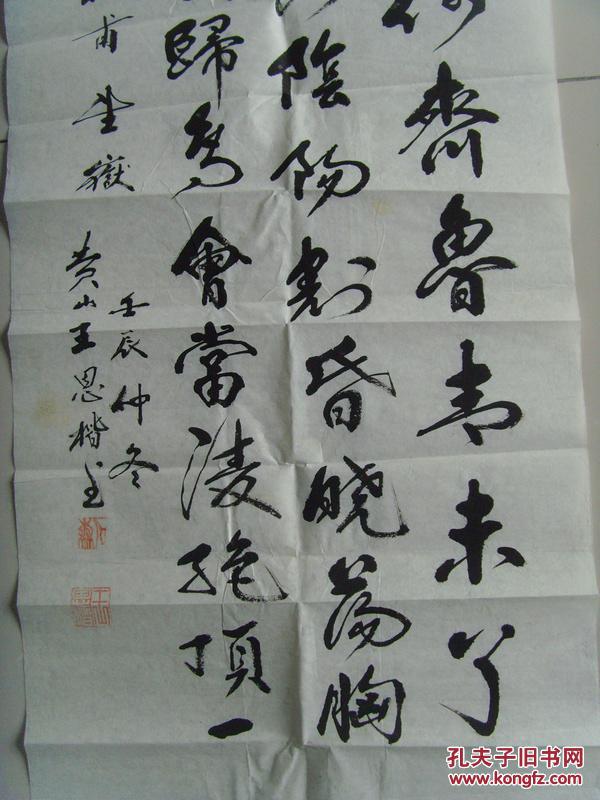 何齊魯青未了
陰陽割昏曉蕩胸
歸鳥會當凌絕頂一
甫望嶽
壬辰仲冬
黄山王恩楷書
孔夫子旧书网
www.kongfz.com